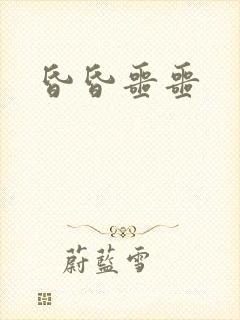 昏昏噩噩
蔚藍雪